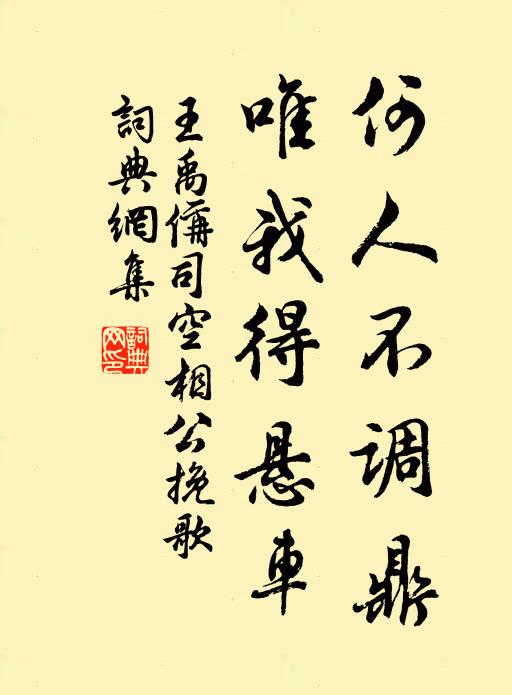 何人不調鼎
唯我得悬車
王禹偁司空相公挽歌
詞典網集
詞典
网印